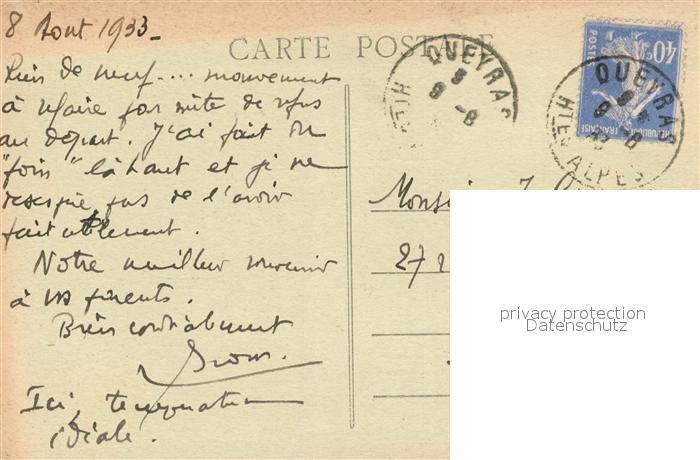 8 Aout 1933_
CARTE POSTALE
Rien de neuf.... mouvement
à refaire par suite de refus
au départ. J'ai fait du
"foin" là haut et je ne
pas de l'avoir
fait
Notre meilleur souvenir
à vos parents.
Bien cordialement
Ici, température
idéale.
QUEYRAS
9 -8
HTES
POSTES
40c
REPUBLIQUE FRANÇAISE
QUEYRAS
9 -8
33
HTES ALPES
Monsieur
27 r
privacy protection
Datenschutz